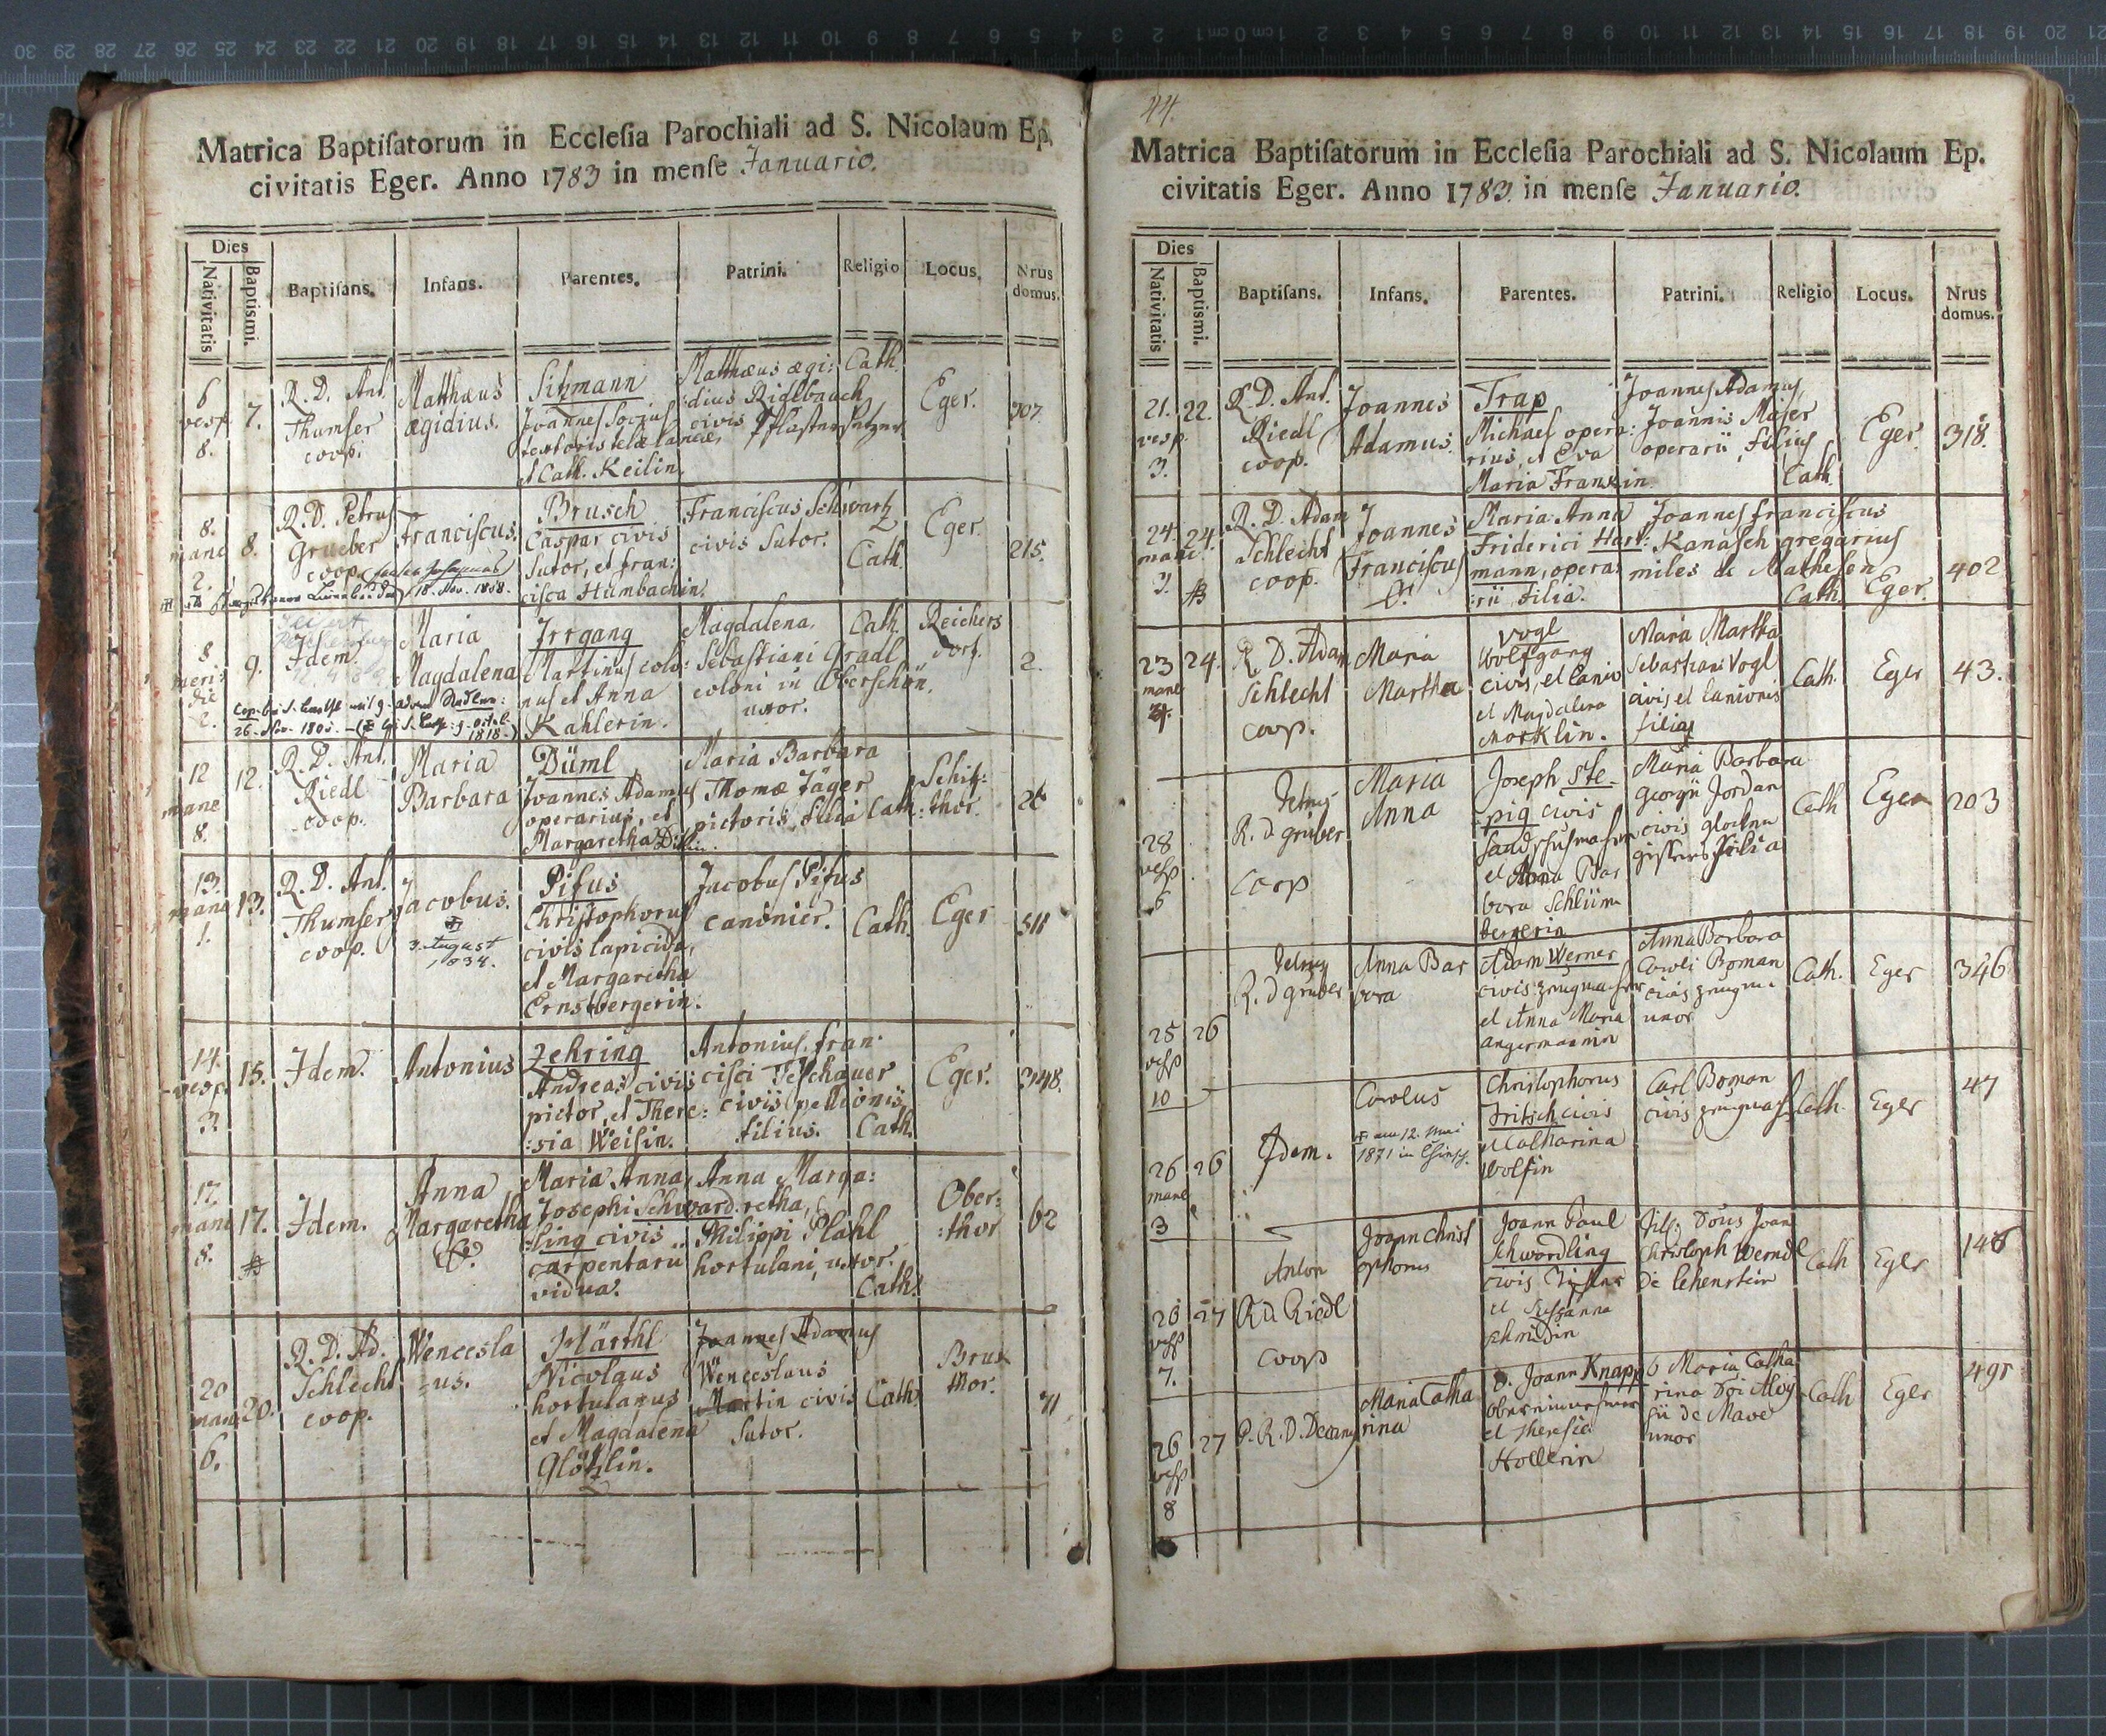 Matrica Baptiſatorum in Eccleſia Parochiali ad S. Nicolaum Ep.
civitatis Eger. Anno 1783 in menſe Januario.
Dies
Nativitatis
Baptismi.
Baptiſans.
Infans.
Parentes.
Patrini.
Religio
Locus.
Nrus
domus.
6
vesp.
8.
7.
R. D. Ant.
Thumser
coop.
Matthæus
ægidius.
Sitzmann
Joannes Socius
textoris telæ laneæ,
et Cath. Keilin.
Matthæus ægi:
:dius Ridlbauch
civis Pflastersetzer
Cath.
Eger.
707.
8.
mane
2.
8.
R. D. Petrus
Grueber
coop.
18. Nov. 1858.
Franciscus.
Brusch
Caspar civis
Sutor, et fran:
cisca Humbachin.
Franciscus Schwartz
civis Sutor.
Cath.
Eger.
215.
8.
meri:
die
2.
9.
Idem.
26. Nov. 1805.
1818.
Maria
Magdalena
Irrgang
Martinus colo:
nus et Anna
Kahlerin.
Magdalena.
Sebastiani Gradl
coloni in Oberschön,
uxor.
Cath.
Reichers
dorf.
2.
12
mane
8.
12.
R. D. Ant.
Riedl
coop.
Maria
Barbara
Düml
Joannes Adamus
operarius, et
Margaretha
Maria Barbara
Thomæ Jäger
pictoris, filia
Cath:
Schif:
:thor.
26
13.
mane
1.
13.
R. D. Ant.
Thumser
coop.
Jacobus.
3. August
1834.
Pifus
Christophorus
civis lapicida,
et Margaretha
Ernstbergerin.
Jacobus Pifus
canonier.
Cath.
Eger
511
14.
vesp.
3.
15.
Idem.
Antonius
Zehring
Andreas civis
pictor, et There:
:sia Weisin.
Antonius, fran:
cisci Teschauer
civis pellionis
filius.
Cath.
Eger.
348.
17.
mane
8.
17.
Idem.
Anna
Margaretha
Maria Anna
Josephi Schward:
:ling civis
carpentarii
vidua.
Anna Marga:
retha,
Philippi Plahl
hortulani, uxor.
Cath.
Ober:
:thor
62
20
mane
6.
20.
R. D. Ad.
Schlecht
coop.
Wencesla
-us.
Härthl
Nicolaus
hortulanus
et Magdalena
Glötzlin.
Joannes Adamus
Wenceslaus
Martin civis
Sutor.
Cath.
Bruk
thor.
71
44.
Matrica Baptiſatorum in Eccleſia Parochiali ad S. Nicolaum Ep.
civitatis Eger. Anno 1783. in menſe Januario.
Dies
Nativitatis
Baptismi.
Baptiſans.
Infans.
Parentes.
Patrini.
Religio
Locus.
Nrus
domus.
21.
vesp.
3.
22.
R. D. Ant.
Riedl
coop.
Joannes
Adamus.
Trap
Michael opera:
rius, et Eva
Maria Frankin.
Joannes Adamus,
Joannis Majer
operarii, filius
Cath.
Eger.
318.
24.
mane
3.
24.
R. D. Adam
Schlecht
coop.
Joannes
Franciscus
Maria Anna
Friderici Hart:
mann, opera:
:rii filia.
Joannes franciscus
Kanasch gregarius
miles de Mathesen
Cath.
Eger.
402
23
mane
4.
24.
R. D. Adam
Schlecht
coop.
Maria
Martha
Vogl
Wolfgang
civis, et lanio
et Magdalena
Morklin.
Maria Martha
Sebastiani Vogl
civis et lanionis
filia
Cath.
Eger
43.
28
vesp
6
Petrus
R. D gruber
Coop
Maria
Anna
Joseph Ste-
pig civis
et Anna Bar
bara Schlüm
bergerin
Maria Barbara
Georgii Jordan
civis glocken
giessers filia
Cath
Eger
203
25
vesp
10
26
Petrus
R. D gruber
Anna Bar
bara
Adam Werner
civis zeugmacher
et Anna Maria
angermanin
Anna Barbara
Caroli Roman
civis zeugm.
uxor
Cath.
Eger
346
26
mane
3
26
Idem.
Carolus
am 12. Mai
1871 in
Christophorus
Fritsch civis
et Catharina
Wolfin
Carl Roman
civis zeugmach
Cath.
Eger
47
26
vesp
7.
27
Anton
R D Riedl
coop
Joann Christ
ophorus
Joann Paul
Schwardling
civis Tischler
et Susanna
Schmidin
Joan
Christoph Werndl
de Lehenstein
Cath
Eger
146
26
vesp
8
27
P. R. D. Decany
Maria Catha
rina
D. Joann Knapp
et Theresia
Hollerin
Maria Catha
rina Doi Aloy
sii de Mave
uxor
Cath
Eger
491